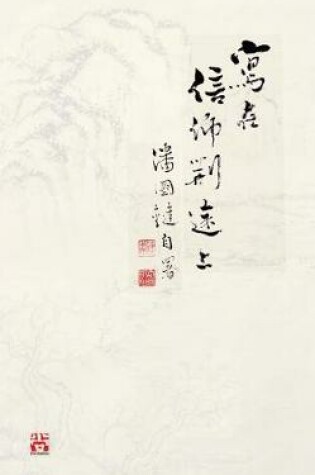 寫在
信仰荊途上
潘國鍵自署